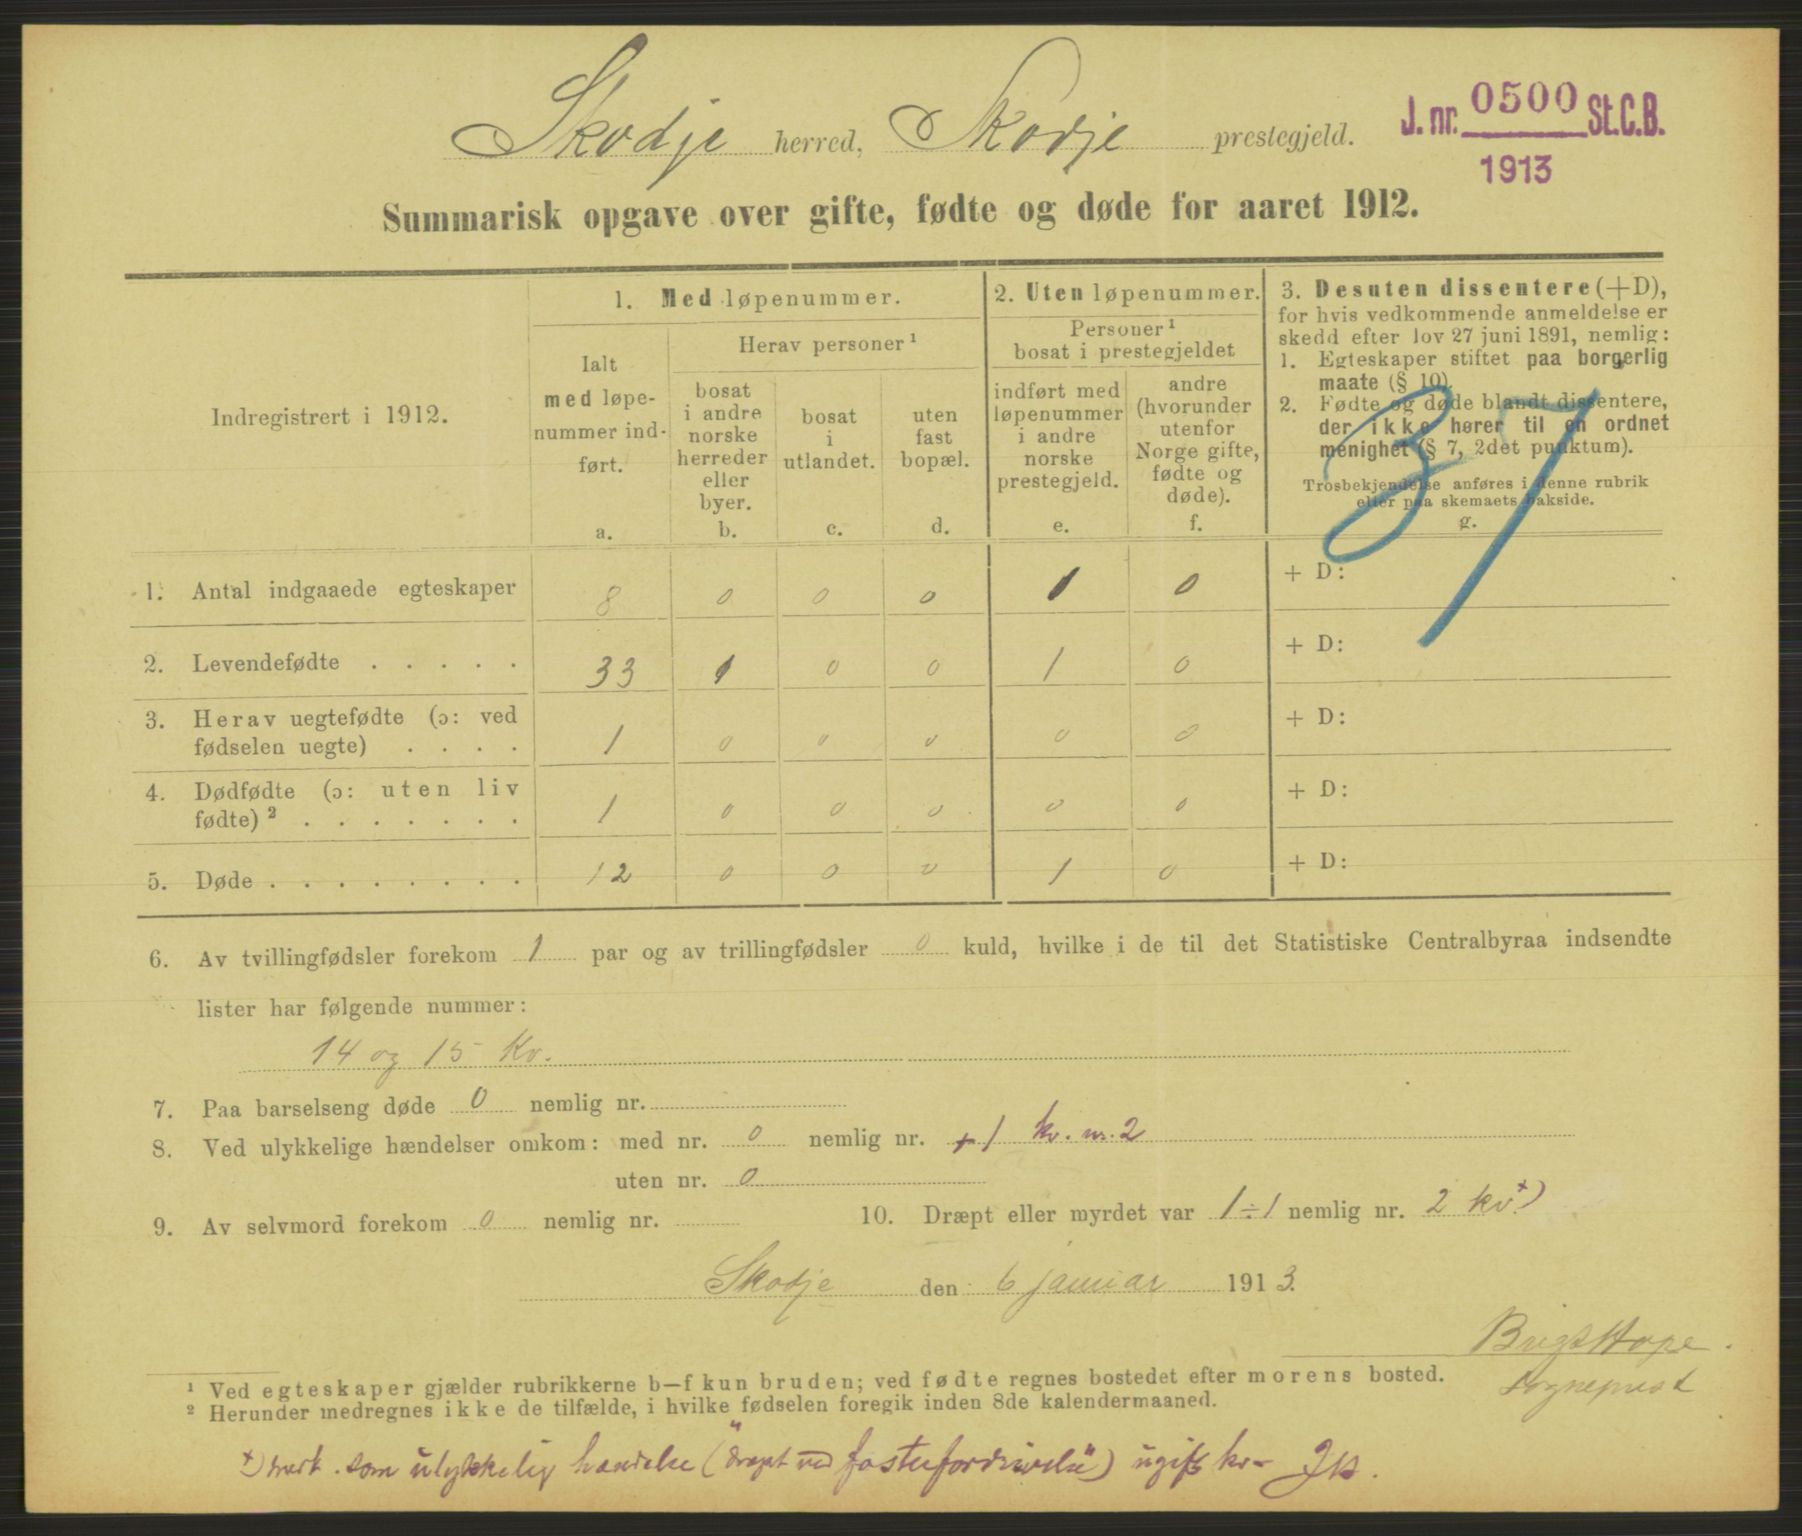 Skodje herred, Skodje prestegjeld.
J. nr. 0500 St.C.B.
1913
Summarisk opgave over gifte, fødte og døde for aaret 1912.
Indregistrert i 1912.
1. Med løpenummer.
Ialt
med løpe-
nummer ind-
ført.
a.
Herav personer ¹
bosat
i andre
norske
herreder
eller
byer.
b.
bosat
i
utlandet.
c.
uten
fast
bopæl.
d.
2. Uten løpenummer.
Personer ¹
bosat i prestegjeldet
indført med
løpenummer
i andre
norske
prestegjeld.
e.
andre
(hvorunder
utenfor
Norge gifte,
fødte og
døde).
f.
3. Desuten dissentere (+D),
for hvis vedkommende anmeldelse er
skedd efter lov 27 juni 1891, nemlig:
1. Egteskaper stiftet paa borgerlig
maate (§ 10).
2. Fødte og døde blandt dissentere,
der ikke hører til en ordnet
menighet (§ 7, 2det punktum).
Trosbekjendelse anføres i denne rubrik
eller paa skemaets bakside.
g.
37
1. Antal indgaaede egteskaper 8 0 0 0 1 0 + D:
2. Levendefødte . . . . . 33 1 0 0 1 0 + D:
3. Herav uegtefødte (ɔ: ved
fødselen uegte) . . . . 1 0 0 0 0 0 + D:
4. Dødfødte (ɔ: uten liv
fødte) ² . . . . . . . 1 0 0 0 0 0 + D:
5. Døde . . . . . . . . . 12 0 0 0 1 0 + D:
6. Av tvillingfødsler forekom 1 par og av trillingfødsler 0 kuld, hvilke i de til det Statistiske Centralbyraa indsendte
lister har følgende nummer:
14 og 15 Kv.
7. Paa barselseng døde 0 nemlig nr.
8. Ved ulykkelige hændelser omkom: med nr. 0 nemlig nr. +1 kv. nr. 2
uten nr. 0
9. Av selvmord forekom 0 nemlig nr.
10. Dræpt eller myrdet var 1÷1 nemlig nr. 2 kv. ˣ)
Skodje den 6 januar 1913.
Brigt Hope.
Sogneprest
¹ Ved egteskaper gjælder rubrikkerne b—f kun bruden; ved fødte regnes bostedet efter morens bosted.
² Herunder medregnes ikke de tilfælde, i hvilke fødselen foregik inden 8de kalendermaaned.
ˣ) som ulykkelig hændelse ("dræpt ved fosterfordrivelse") ugift kv.